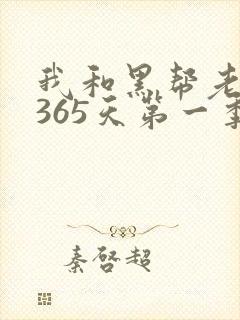 我和黑帮老
365天第一季
秦啓超